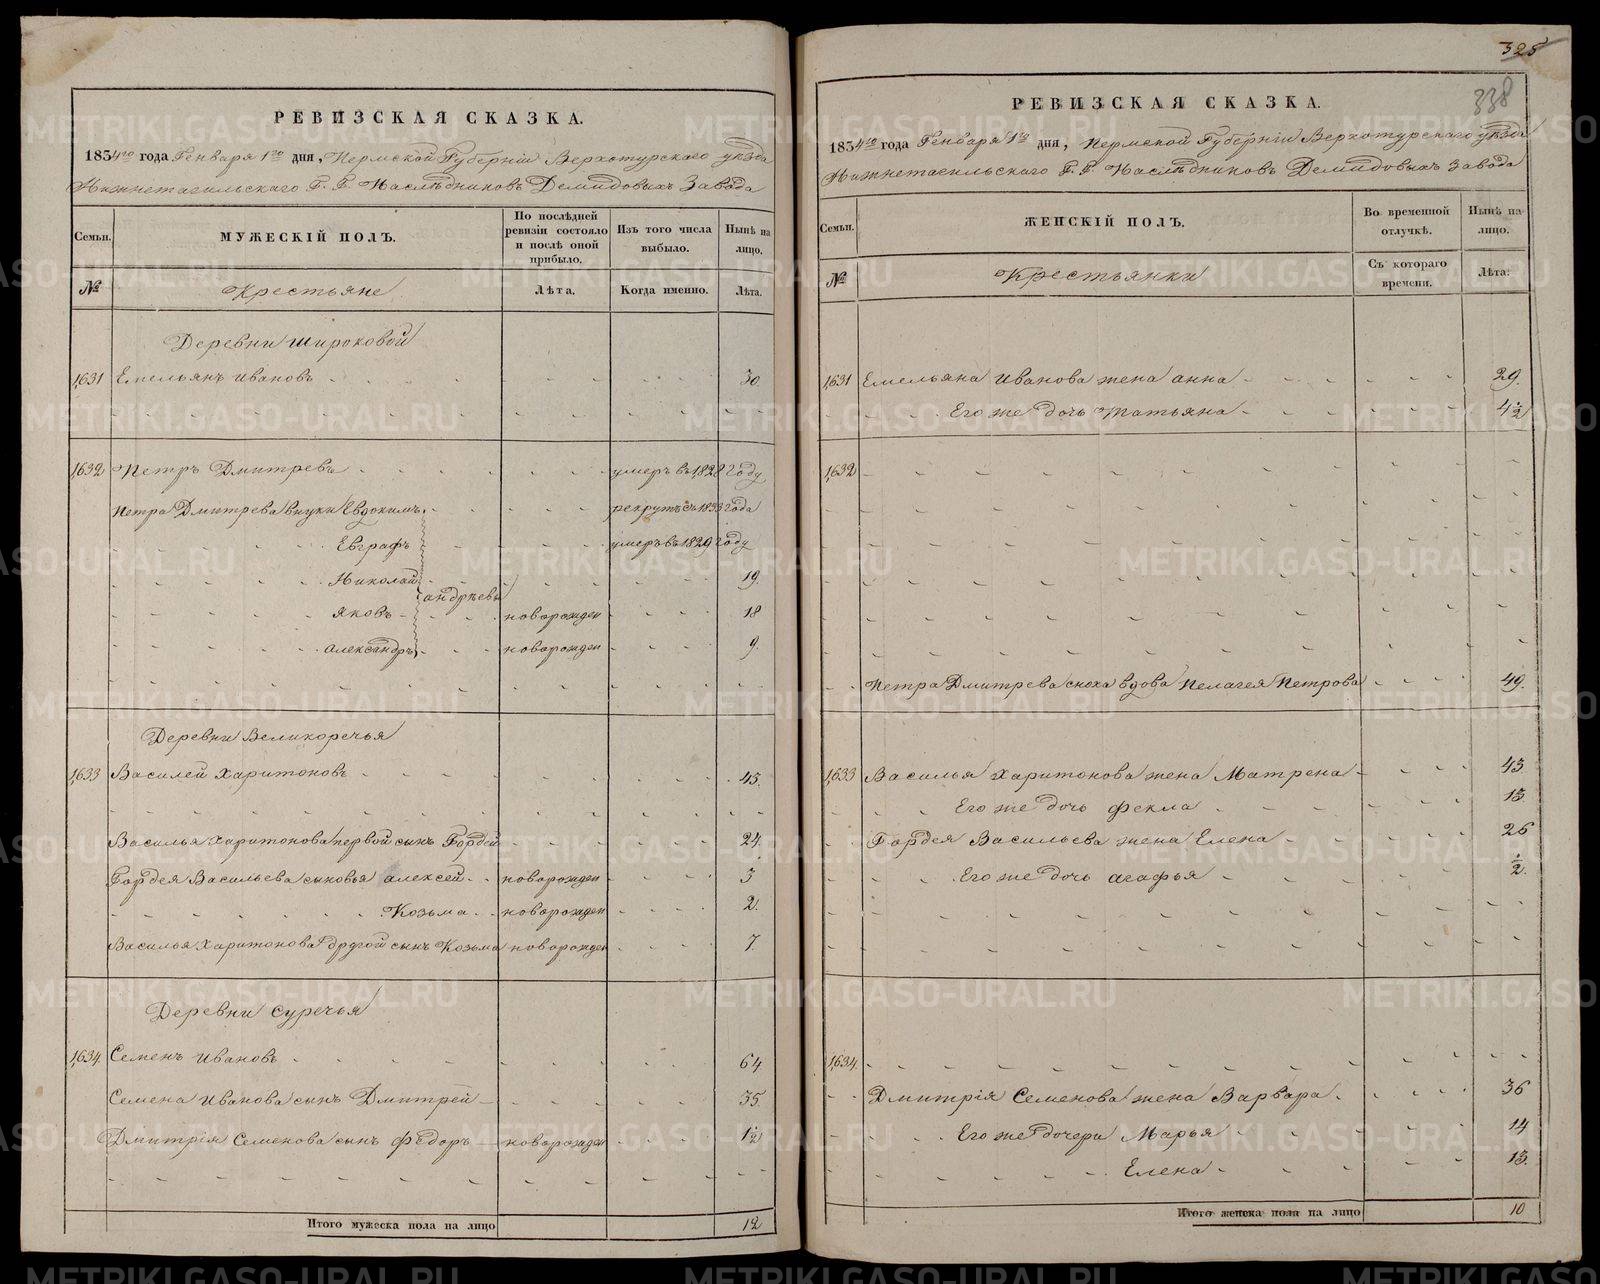 РЕВИЗСКАЯ СКАЗКА.
1834го года Генваря 1го дня, Пермской Губерніи Верхотурскаго уезда
Нижнетагильскаго Г. Г. Наследниковъ Демидовыхъ Завода
Семьи. МУЖЕСКІЙ ПОЛЪ. По послѣдней ревизіи состояло и послѣ оной прибыло. Изъ того числа выбыло. Нынѣ на лицо.
№ Крестьяне Лѣта. Когда именно. Лѣта.
Деревни Широковой
1,631 Емельянъ Ивановъ 30.
1,632 Петръ Дмитревъ умеръ въ 1,828 году
Петра Дмитрева внуки Евдокимъ рекрутъ съ 1833 года
Евграфъ умеръ въ 1829 году
Николай 19.
Андреевы
Яковъ новорожден 18
Александръ новорожден 9.
Деревни Великоречья
1,633 Василей Харитоновъ 45.
Василья Харитонова первой сынъ Гордей 24.
Гордея Васильева сыновья Алексей новорожден 3
Козьма новорожден 2.
Василья Харитонова другой сынъ Козьма новорожден 7.
Деревни Суречья
1,634. Семенъ Ивановъ 64
Семена Иванова сынъ Дмитрей 35.
Дмитрія Семенова сынъ Федоръ новорожден 1½
Итого мужеска пола на лицо 12
325
338
РЕВИЗСКАЯ СКАЗКА.
1834го года Генваря 1го дня, Пермской Губерніи Верхотурскаго уезда
Нижнетагильскаго Г. Г. Наследниковъ Демидовыхъ Завода
Семьи. ЖЕНСКІЙ ПОЛЪ. Во временной отлучкѣ. Нынѣ на лицо.
№ Крестьянки Съ котораго времени. Лѣта.
1,631 Емельяна Иванова жена Анна 29.
Его же дочь Татьяна 4½
1,632
Петра Дмитрева сноха вдова Пелагея Петрова 49.
1,633 Василья Харитонова жена Матрена 43
Его же дочь Фекла 13.
Гордея Васильева жена Елена 26
Его же дочь Агафья ½.
1,634.
Дмитрія Семенова жена Варвара 36
Его же дочери Марья 14
Елена 13.
Итого женска пола на лицо 10
METRIKI.GASO-URAL.RU